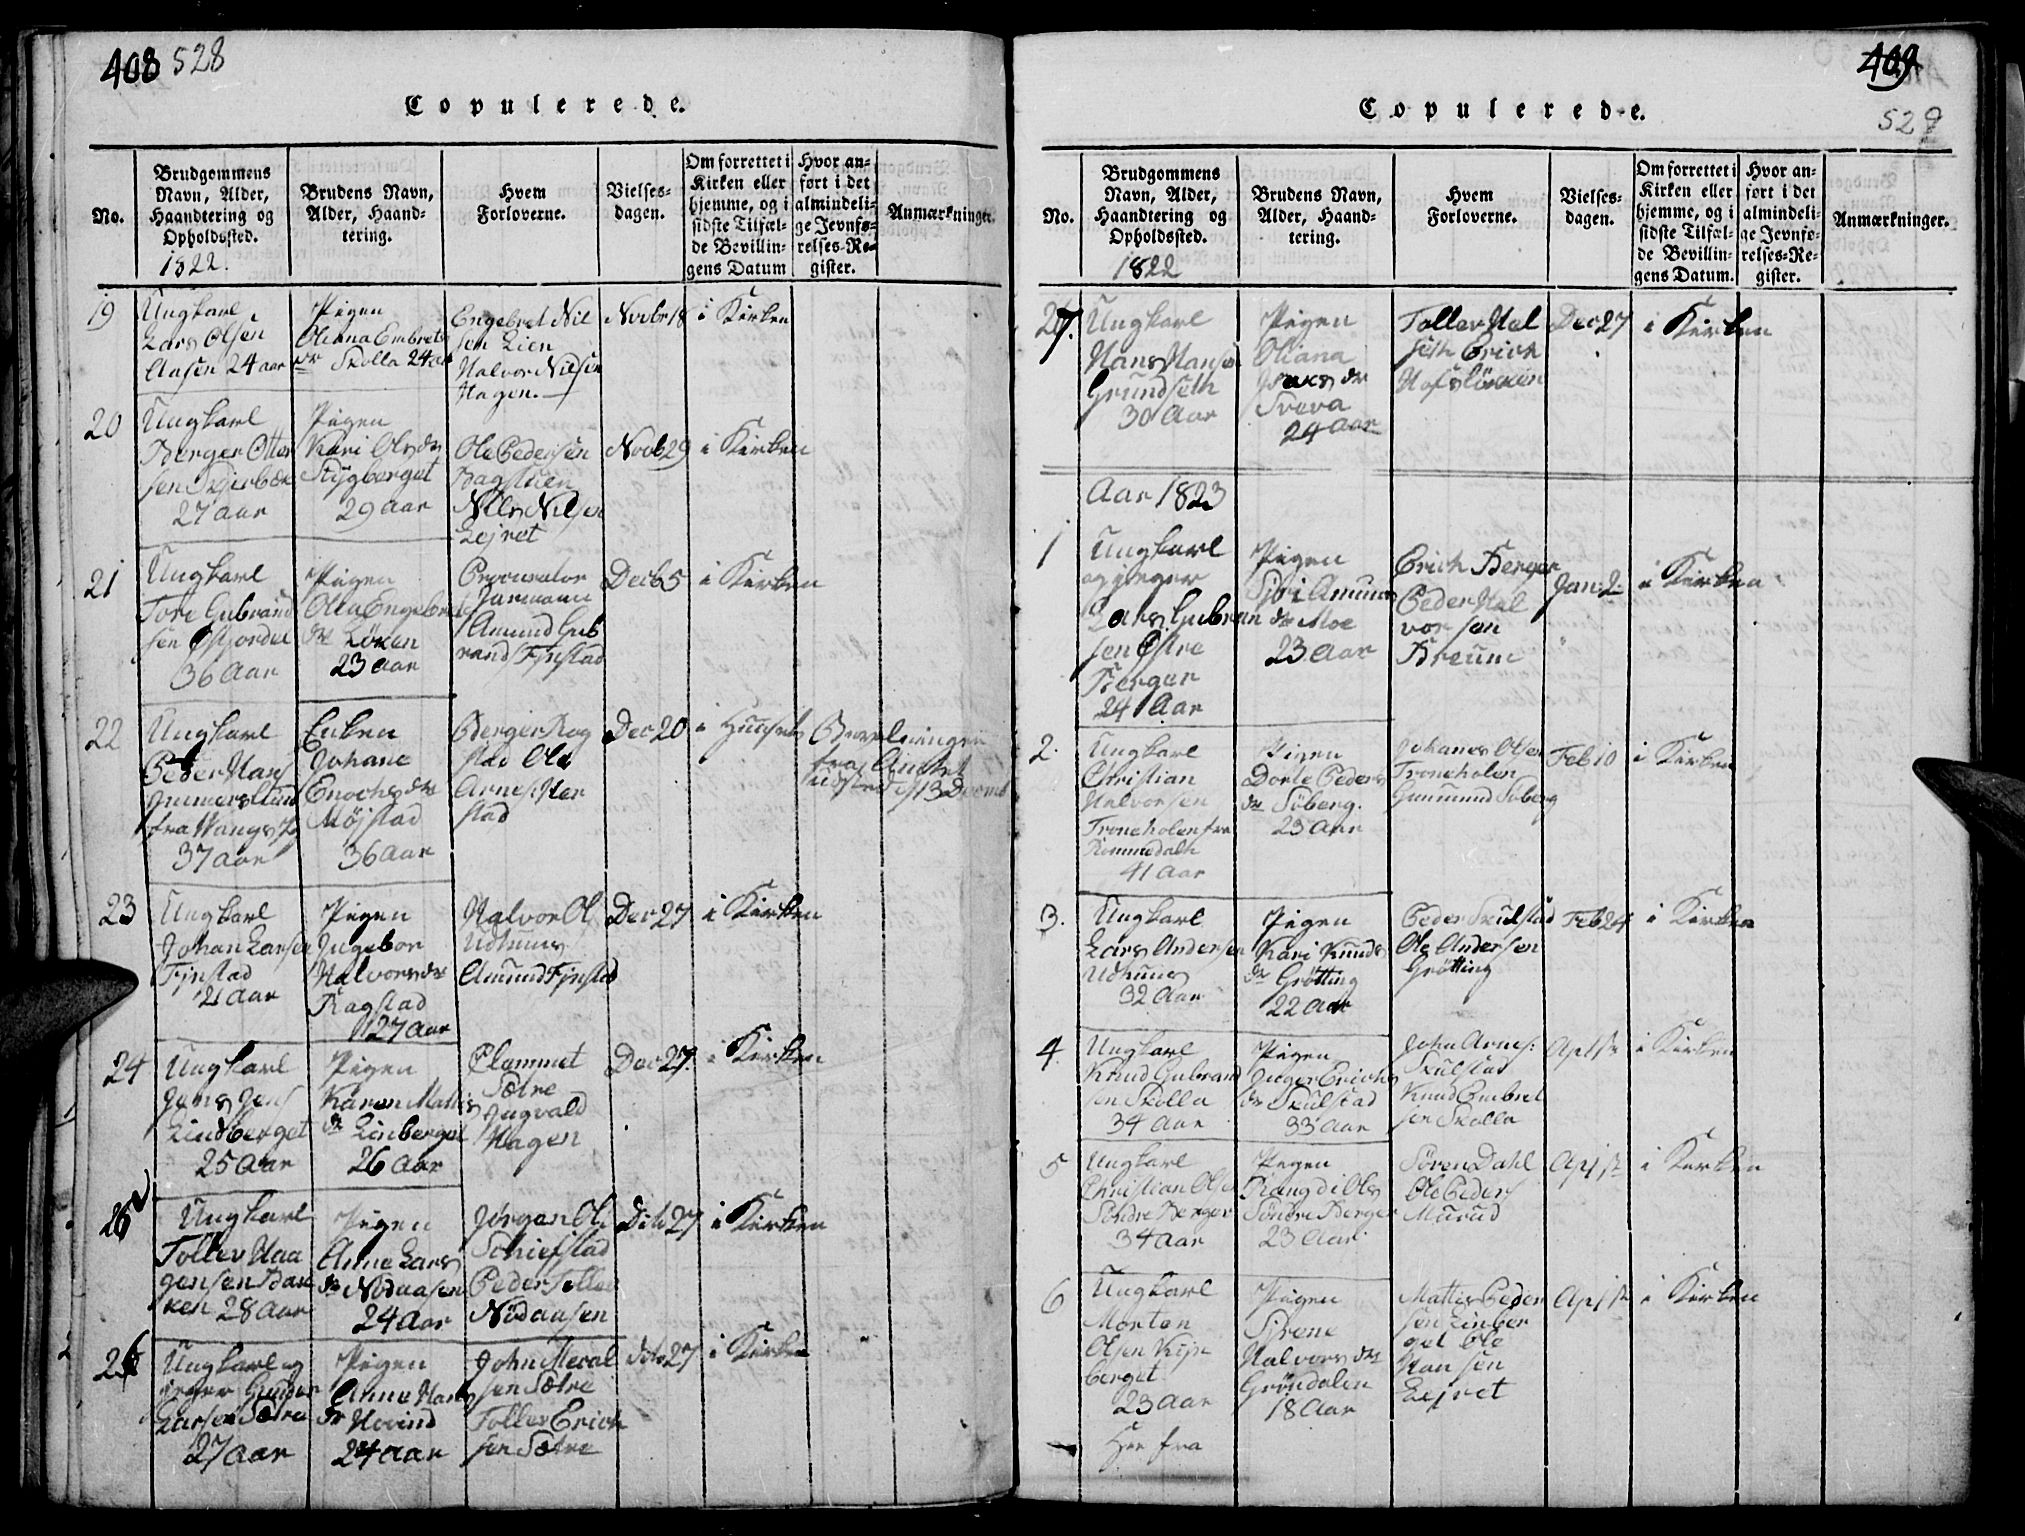 408 528
Copulerede.
No.
Brudgommens
Navn, Alder,
Haandtering og
Opholdssted.
1822.
Brudens Navn,
Alder, Haand-
tering.
Hvem
Forloverne.
Vielses-
dagen.
Om forrettet i
Kirken eller
hjemme, og i
sidste Tilfæl-
de Bevillin-
gens Datum
Hvor an-
ført i det
almindeli-
ge Jevnfø-
relses-Re-
gister.
Anmærkninger.
19
Ungkarl
Lars Olsen
Aasen 24 aar
Pigen
Oliana Embrets
dr Skolla 24 aar
Engebret Nil
sen Lien
Halvor Nilsen
Hagen.
Novbr 18
i Kirken
20
Ungkarl
Berger Otter
sen
27 aar
Pigen
Kari Olsdr
Stÿgberget
29 aar
Ole Pedersen
Bagstuen
Nils Nilsen
Lejret
Novb 29
i Kirken
21
Ungkarl
Tore Gubrand
sen
36 Aar
Pigen
Olea Engebrets
dr Löken
23 aar
Procurator
Amund Gub
rand Fjnstad
Decb 5
i Kirken
22
Ungkarl
Peder Hans
fra Vangs
37 aar
Enken
Johane
Enochsdr
Möjstad
36 aar
Berger Rog
stad Ole
Arnes
stad
Dec 20
i Huuset
fra Amtet
udsted 13 Decemb
23
Ungkarl
Johan Larsen
Fjnstad
21 aar
Pigen
Ingebor
Halvorsdr
Ragstad
27 aar
Halvor Ol
Udhuus
Amund Fjnstad
Dec 27
i Kirken
24
Ungkarl
Jens Jens
Lindberget
25 Aar
Pigen
Karen Mattis
dr Linberget
26 Aar
Clemmet
Sætre
Ingvald
Hagen
Dec 27.
i Kirken
Ungkarl
Tollev Haa
gensen Bak
ken 28 aar
Pigen
Anne Lars
dr Nödaasen
24 Aar
Jörgen Ol
Schiefstad
Peder
Nödaasen
Dito 27
i Kirken
26
Ungkarl og
jeger Gunder
Larsen Sætre
27 aar
Pigen
Anne Hans
dr Hovind
24 aar
John
sen Sætre
Tollev Erich
sen Sætre
dito 27
i Kirken
409
529
Copulerede.
No.
Brudgommens
Navn, Alder,
Haandtering og
Opholdssted.
1822
Brudens Navn,
Alder, Haand-
tering.
Hvem
Forloverne.
Vielses-
dagen.
Om forrettet i
Kirken eller
hjemme, og i
sidste Tilfæl-
de Bevillin-
gens Datum.
Hvor an-
ført i det
almindeli-
ge Jevnfø-
relses-Re-
gister.
Anmærkninger.
27.
Ungkarl
Hans Hansen
Grundseth
30 Aar
Pigen
Oliana
24 aar
Tollev Hal
seth Erich
Hofslökken
Dec 27
i Kirken
Aar 1823
1
Ungkarl
og jeger
Lars Gubran
sen Östre
Berger
24 Aar
Pigen
Siri Amunds
dr Moe
23 aar
Erich Berger
Peder Hal
vor sen
Breum
Jan: 2
i Kirken
2.
Ungkarl
Christian
Halvorsen
Troneholen fra
Rommedals
41 aar
Pigen
Dorte Peders
dr Söberg.
23 Aar
Johanes Olsen
Troneholen
Gunmund Söberg
Feb 10
i Kirken
3.
Ungkarl
Lars Andersen
Udhuus
32 Aar
Pigen
Kari Knuds
dr Grötting
22 Aar
Peder Skulstad
Ole Andersen
Grötting
Feb 24
i Kirken
4.
Ungkarl
Knud Gubrand
sen Skolla
34 aar
Pigen
Inger Erichs
dr Skulstad
33 aar
John Arnes:
Skulstad
Knud Embret
sen Skolla
i Kirken
5
Ungkarl
Christian Olsen
Söndre Berger
34 aar
Pigen
Rangdi Ols
Söndre Berger
23 Aar
Sören Dahl
Ole Peders
Murud
i Kirken
6
Ungkarl
Morten
Olsen Kijn
berget
23 aar
Pigen
Sirene
Halvorsdr
Gröndalen
18 Aar
Mattis Peder
sen Linber
get Ole
Hansen
Lejret
i Kirken
Her fra